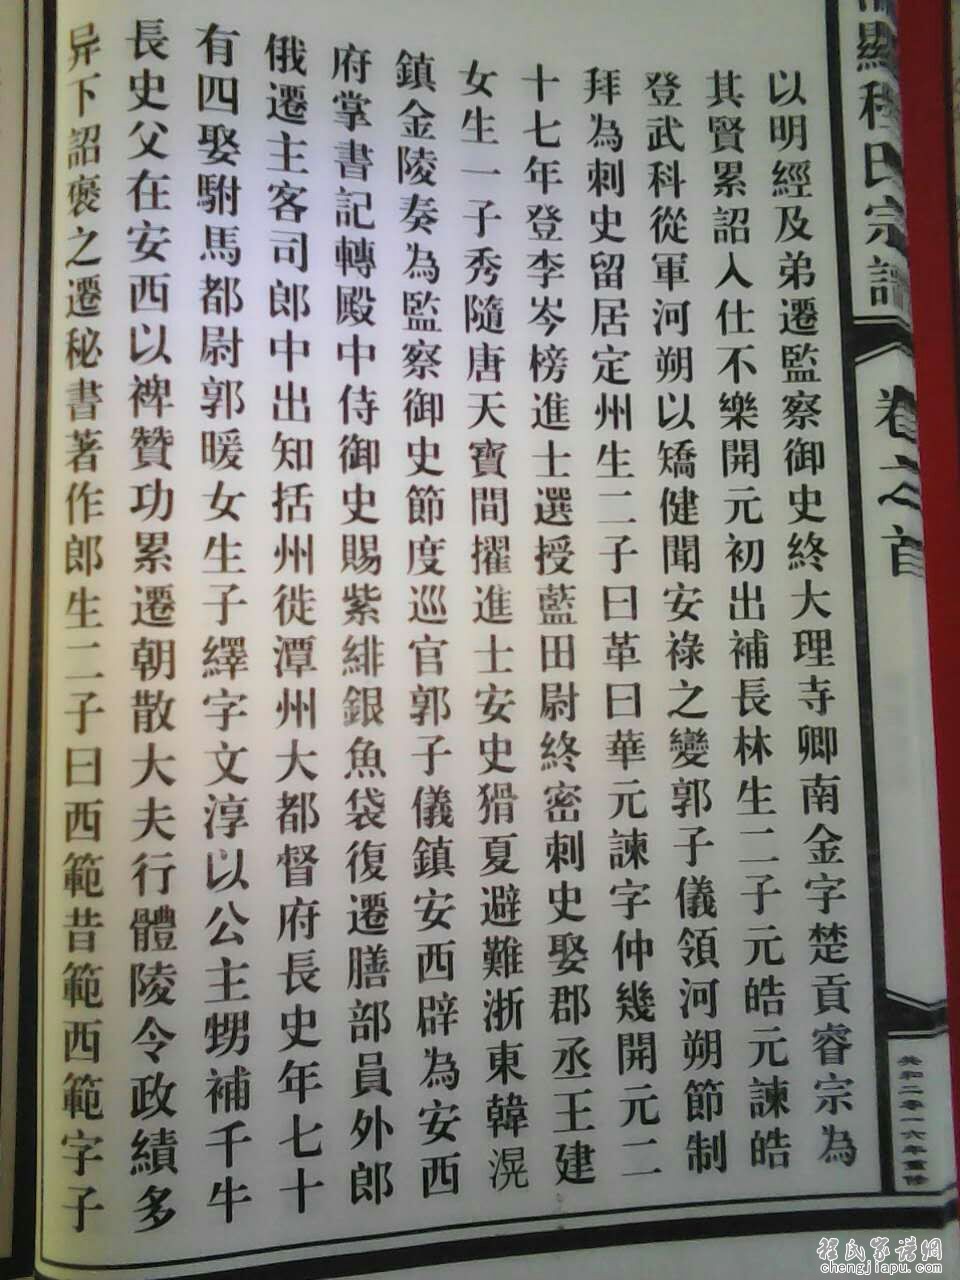 顯程氏宗譜
卷之首
共和二零一六年重修
以明經及弟遷監察御史終大理寺卿南金字楚貢睿宗為
其賢累詔入仕不樂開元初出補長林生二子元皓元諫皓
登武科從軍河朔以矯健聞安祿之變郭子儀領河朔節制
拜為刺史留居定州生二子曰革曰華元諫字仲幾開元二
十七年登李岑榜進士選授藍田尉終密刺史娶郡丞王建
女生一子秀隨唐天寶間擢進士安史猾夏避難浙東韓滉
鎮金陵奏為監察御史節度巡官郭子儀鎮安西辟為安西
府掌書記轉殿中侍御史賜紫緋銀魚袋復遷膳部員外郎
俄遷主客司郎中出知括州徙潭州大都督府長史年七十
有四娶駙馬都尉郭暖女生子繹字文淳以公主甥補千牛
長史父在安西以裨贊功累遷朝散大夫行體陵令政績多
异下詔褒之遷秘書著作郎生二子曰西範昔範西範字子
程氏家譜網
chengjiapu.com